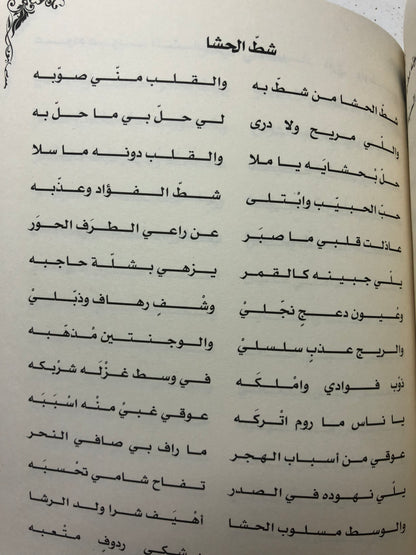 شطّ الحشا
شطّ الحشا من شطّ به والقلب منّي صوّبه
واللّي مريح ولا درى لي حلّ بي ما حلّ به
حلّ بْحشايَه يا ملا والقلب دونه ما سلا
حبّ الحبيّب وابْتلى شطّ الفؤاد وعذّبه
عاذلت قلبي ما صبَر عن راعي الطرَف الحوَر
بلي جبينه كالقمر يزهي بشلّة حاجبه
وعْيون دعجٍ نجّليْ وشْفٍ رهاف وذبّليْ
والريج عذبٍ سلسليْ والوجنتين مْذهّبه
ذوّب فوادي وامْلكَه في وسط غزْلَه شرْبكه
يا ناس ما روم اتْركَه عوقي غبيْ منْه اسْبَبَه
عوقي من أسباب الهجر ما راف بي صافي النحر
بلّي نهوده في الصدر تفاح شامي تحْسبَه
والوسط مسلوب الحشا أهْيَف شرا ولد الرشا
ردوفٍ متْعبه